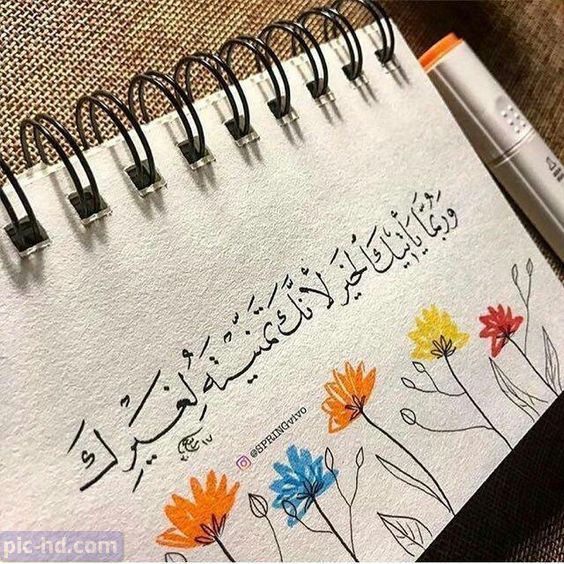 وَرُبَمَّا يَأتيكَ الخَير لأنكَّ تمَنيَّتهِ لِغَيركَ
@SPRINGvivo
pic-hd.com